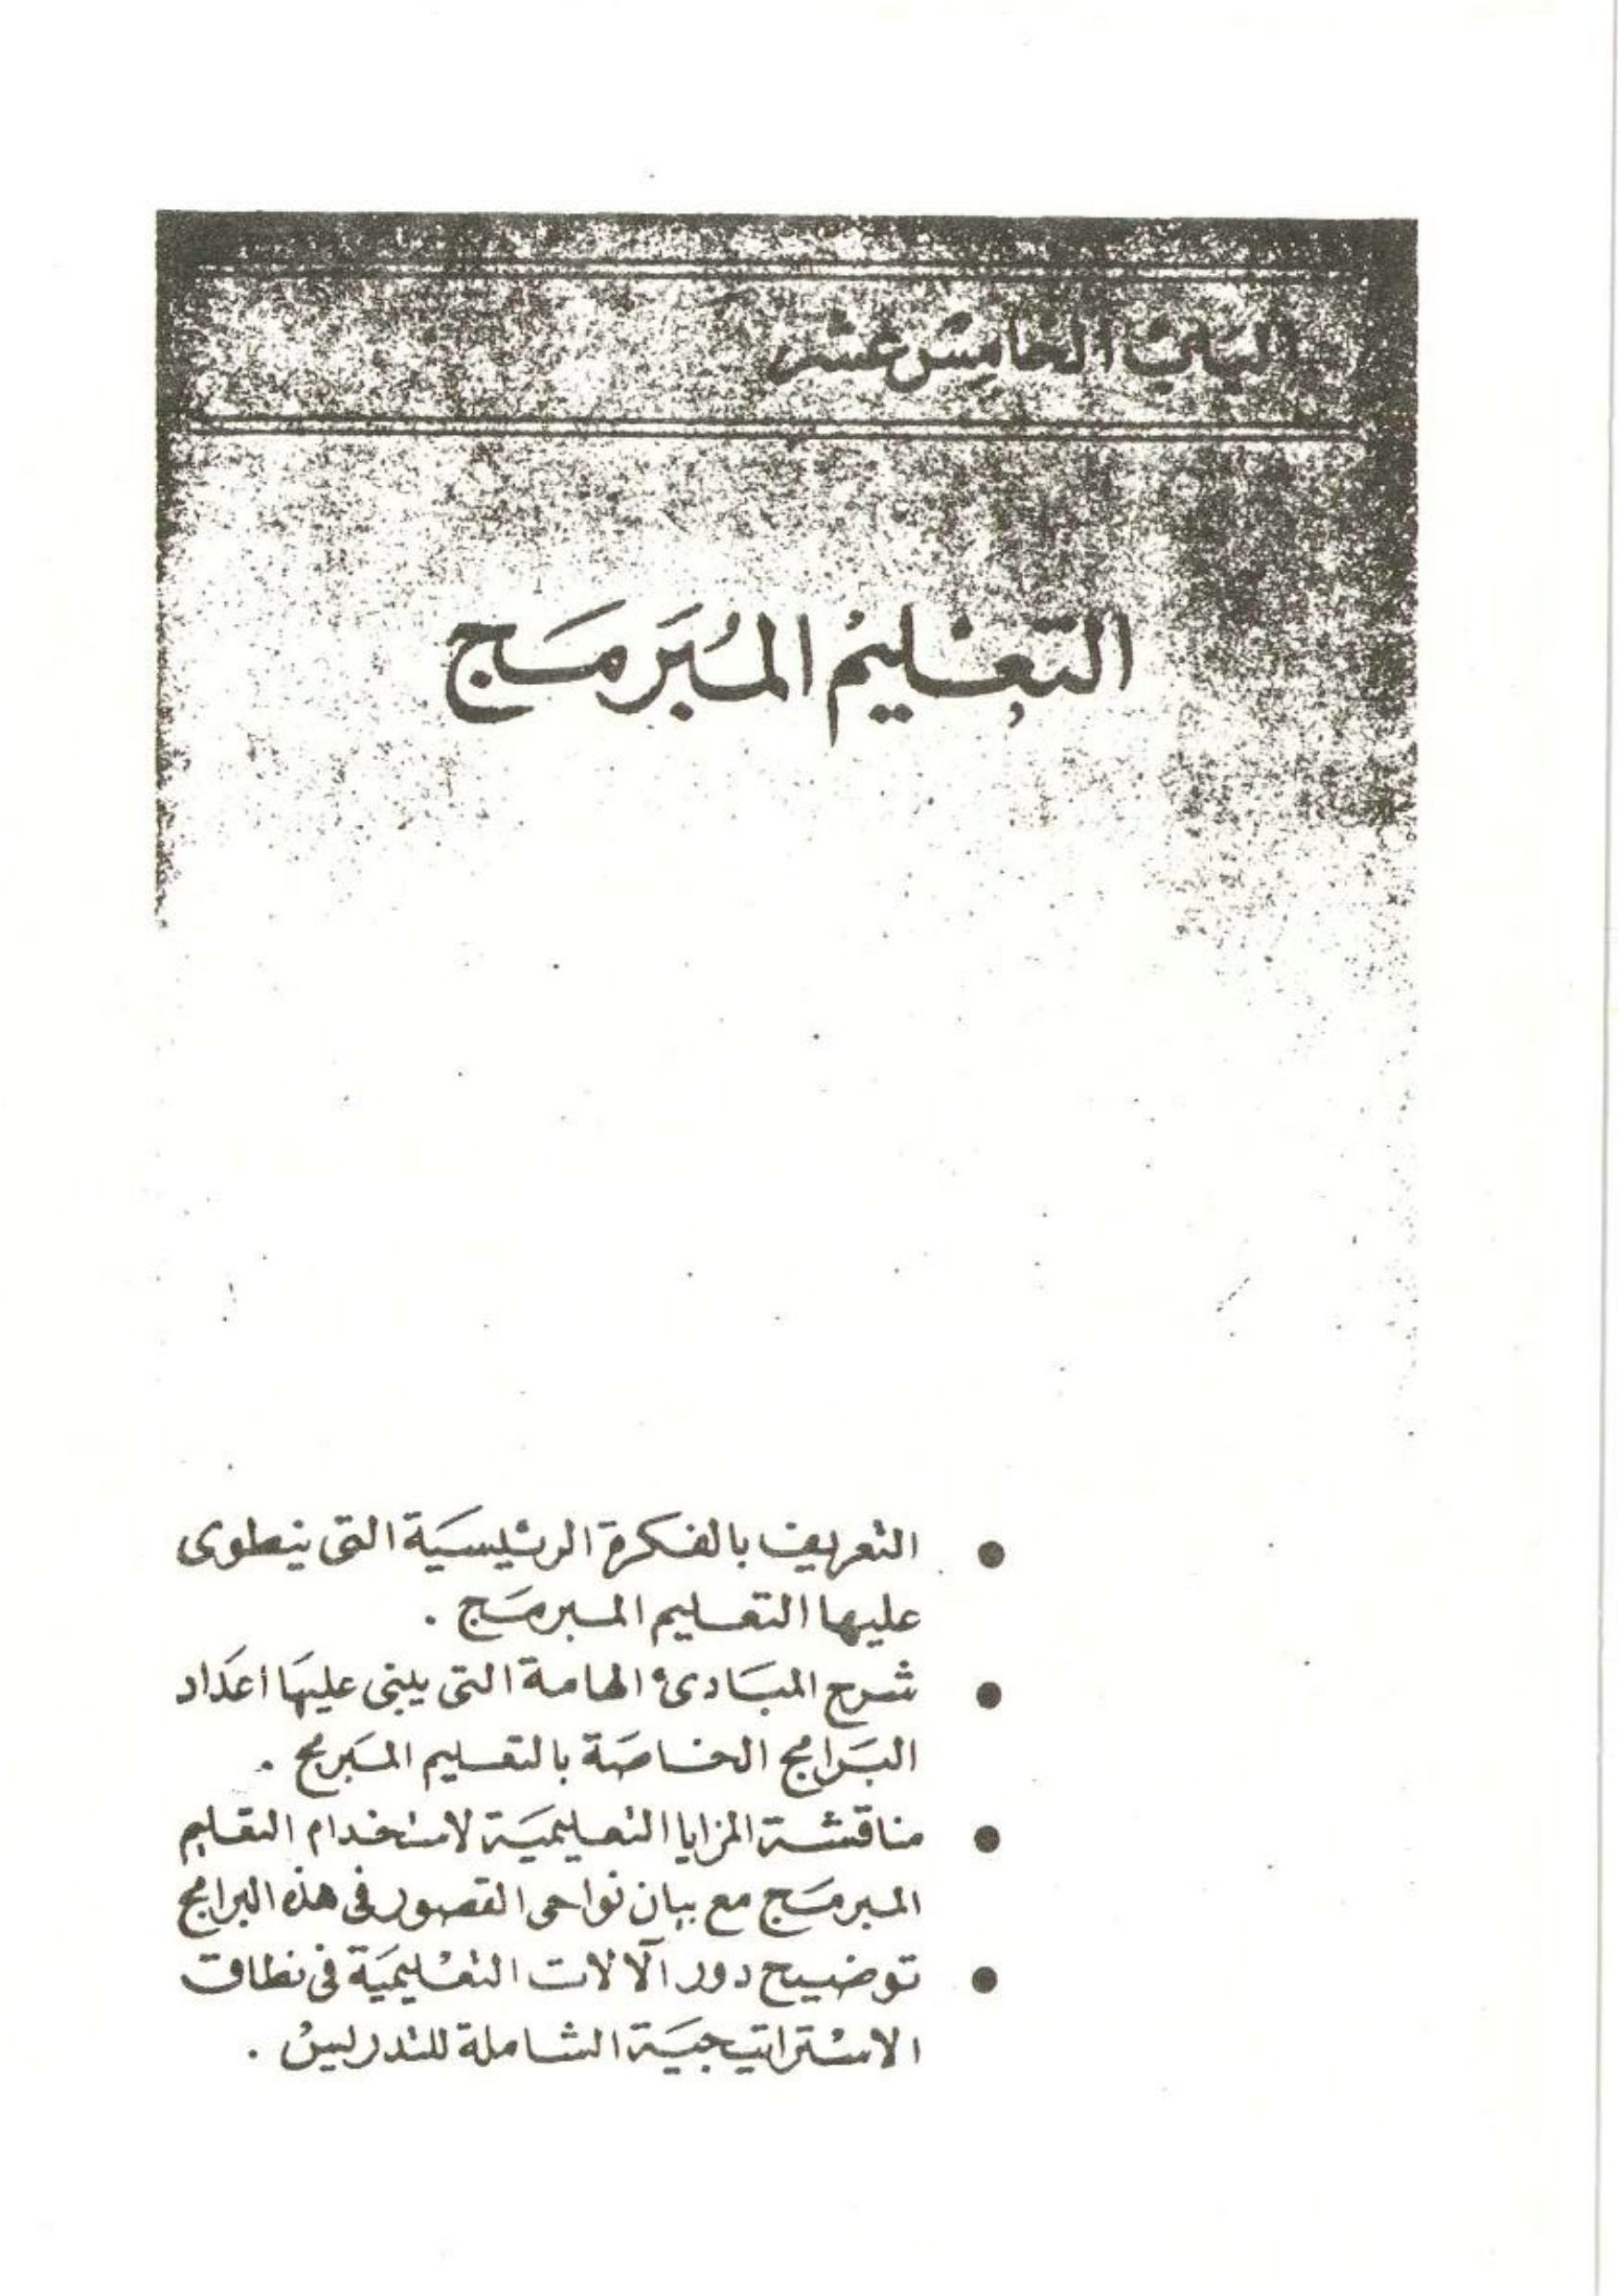 الباب الخامس عشر
التعليم المبرمج
• التعريف بالفكرة الرئيسية التى ينطوى
عليها التعليم المبرمج .
• شرح المبادئ الهامة التى يبنى عليها اعداد
البرامج الخاصة بالتعليم المبرمج .
• مناقشة المزايا التعليمية لاستخدام التعليم
المبرمج مع بيان نواحى القصور فى هذه البرامج
• توضيح دور الآلات التعليمية فى نطاق
الاستراتيجية الشاملة للتدريس .